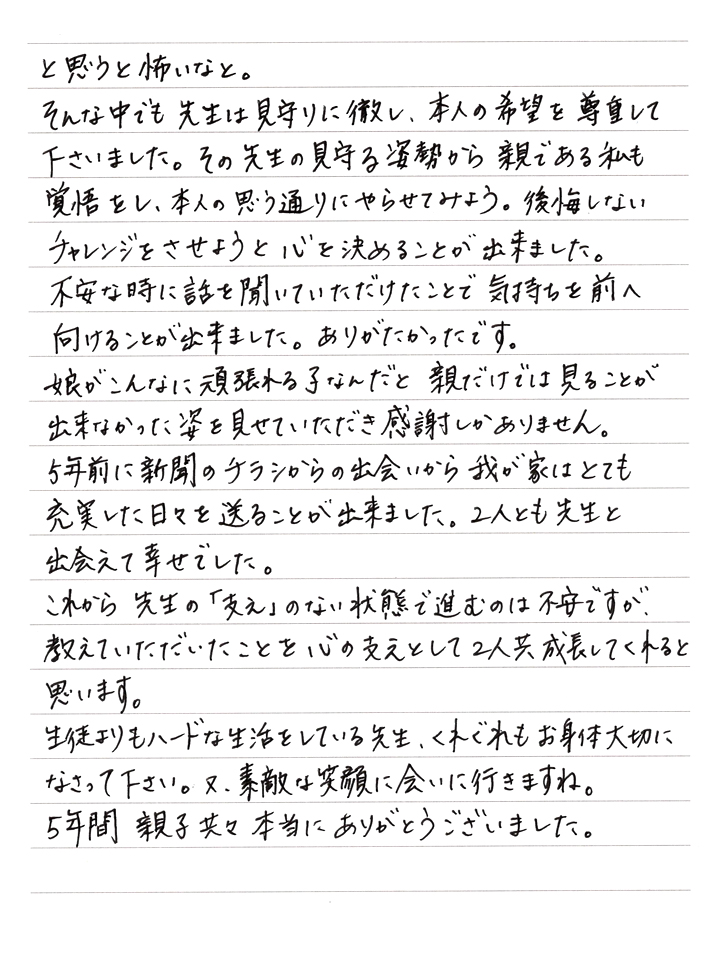 と思うと怖いなと。
そんな中でも先生は見守りに徹し、本人の希望を尊重して
下さいました。その先生の見守る姿勢から親である私も
覚悟をし、本人の思う通りにやらせてみよう。後悔しない
チャレンジをさせようと心を決めることが出来ました。
不安な時に話を聞いていただけたことで気持ちを前へ
向けることが出来ました。ありがたかったです。
娘がこんなに頑張れる子なんだと親だけでは見ることが
出来なかった姿を見せていただき感謝しかありません。
5年前に新聞のチラシからの出会いから我が家はとても
充実した日々を送ることが出来ました。2人とも先生と
出会えて幸せでした。
これから先生の「支え」のない状態で進むのは不安ですが、
教えていただいたことを心の支えとして2人共成長してくれると
思います。
生徒よりもハードな生活をしている先生、くれぐれもお身体大切に
なさって下さい。又、素敵な笑顔に会いに行きますね。
5年間 親子共々本当にありがとうございました。